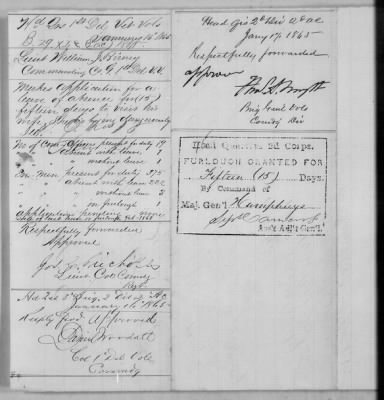 Hd Qrs 1st Del Vet Vols
January 16th 1865
Lieut William J. Birney
Commanding Co G 1st Del V.V.
Makes application for a
leave of absence for (15)
fifteen days to visit his
wife, who is lying dangerously
ill.
No of Com. officers present for duty 19
absent with leave 7
" without leave 1
Enl. men present for duty 375
" absent with leave 222
" " without " 2
" " on furlough 1
application pending none
Respectfully forwarded
Approved
Lieut Col Comdg
Regt
Hd Qrs 3d Brig 2 Div 2d AC
January 16th 1865
Resply ford. Approved
Daniel Woodall
Col 1st Del Vols
Commdg
Head Qrs 2d Div 2d AC
Jany 17. 1865
Respectfully forwarded
approved
Thos A. Smyth
Brig Genl Vols
Comdg Div
Head Quarters 2d Corps,
FURLOUGH GRANTED FOR
Fifteen (15) Days.
By Command of
Maj. Gen'l Humphreys
Sept Carncross
Ass't Adj't Gen'l